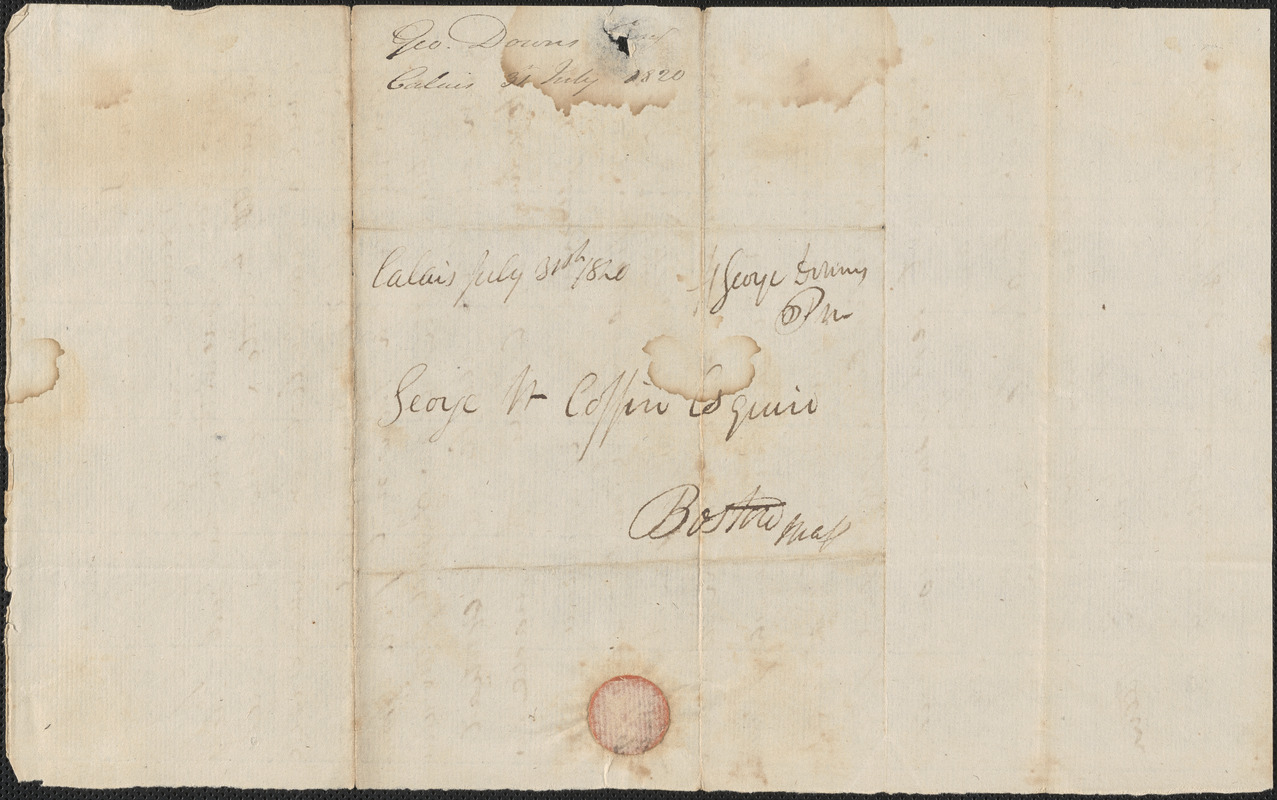 Geo. Downs
Calais 31 July 1820
Calais July 31st 1820
George Downs
PM
George W Coffin Esquire
Boston Mass